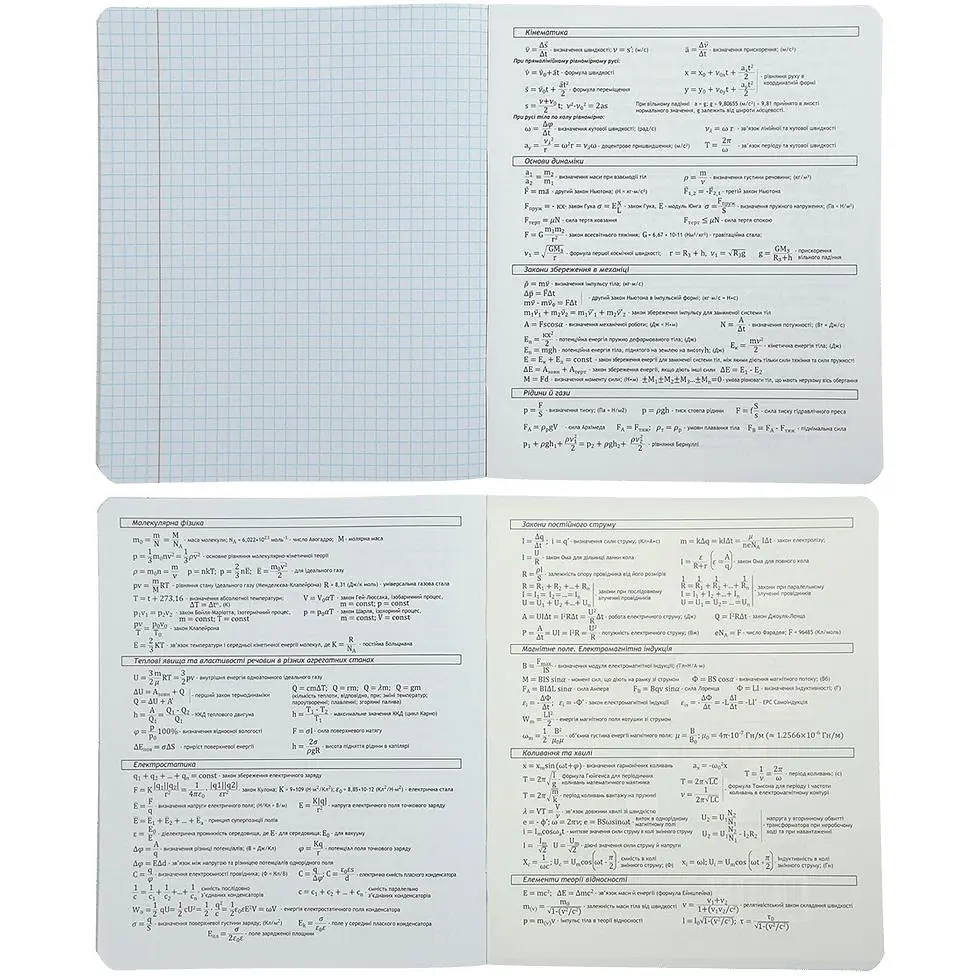 Кінематика
v̄ = Δs̄/Δt - визначення швидкості; v = s'; (м/с) ā = Δv̄/Δt - визначення прискорення; (м/с²)
При прямолінійному рівномірному русі:
v̄ = v̄₀+āt - формула швидкості x = x₀ + v₀ₓt + aₓt²/2 - рівняння руху в координатній формі
s̄ = v̄₀t + āt²/2 - формула переміщення y = y₀ + v₀ᵧt + aᵧt²/2
s = (v+v₀)/2 t; v²-v₀² = 2as При вільному падінні a = g; g = 9,80655 (м/с²) ≈ 9,81 прийнято в якості
нормального значення, g залежить від широти місцевості.
При русі тіла по колу рівномірно:
ω = Δφ/Δt - визначення кутової швидкості; (рад/с) v₂ = ω r - зв'язок лінійної та кутової швидкості
aᵧ = v₂²/r = ω²r = v₂ω - доцентрове пришвидшення; (м/с²) T = 2π/ω - зв'язок періоду та кутової швидкості
Основи динаміки
a₁/a₂ = m₂/m₁ - визначення маси при взаємодії тіл ρ = m/v - визначення густини речовини; (кг/м³)
F̄ = mā - другий закон Ньютона; (Н = кг·м/с²) F̄₁,₂ = -F̄₂,₁ - третій закон Ньютона
Fпруж = - кх- закон Гука σ = E x/L - закон Гука, E - модуль Юнга σ = Fпруж/S - визначення пружного напруження; (Па = Н/м²)
Fтерт = μN - сила тертя ковзання Fтерт ≤ μN - сила тертя спокою
F = G m₁m₂/r² - закон всесвітнього тяжіння; G = 6,67 * 10-11 (Нм²/кг²) - гравітаційна стала;
v₁ = √(GM₃/r) - формула першої космічної швидкості; r = R₃ + h, v₁ = √R₃g g = GM₃/R₃+h - прискорення вільного падіння
Закони збереження в механіці
ρ̄ = mv̄ - визначення імпульсу тіла; (кг·м/с)
Δρ̄ = F̄Δt
mv̄ - mv̄₀ = FΔt - другий закон Ньютона в імпульсній формі; (кг·м/с = Н•с)
m₁v̄₁ + m₂v̄₂ = m₁v̄'₁ + m₂v̄'₂ - закон збереження імпульсу для замкненої системи тіл
A = Fscosα - визначення механічної роботи; (Дж = Н•м) N = A/Δt - визначення потужності; (Вт = Дж/с)
Eп = кx²/2 - потенційна енергія пружно деформованого тіла; (Дж) Eк = mv²/2 - кінетична енергія тіла; (Дж)
Eп = mgh - потенційна енергія тіла, піднятого на землею на висоту h; (Дж)
E = Eк + Eп = const - закон збереження енергії для замкненої системи тіл, між якими діють тільки сили тяжіння та сили пружності
ΔE = Aзовн + Aтерт - закон збереження енергії, якщо діють інші сили ΔE = E₁ - E₂
M = Fd - визначення моменту сили; (Н•м) ±M₁±M₂±M₃...±Mₙ=0 - умова рівноваги тіл, що мають нерухому вісь обертання
Рідини й гази
p = F/S - визначення тиску; (Па = Н/м2) p = ρgh - тиск стовпа рідини F = f S/s - сила тиску гідравлічного преса
F_A = ρ_p gV - сила Архімеда F_A = Fтяж; ρт = ρр - умови плавання тіла F_B = F_A - Fтяж - піднімальна сила
p₁ + ρgh₁+ ρv₁²/2 = p₂ + ρgh₂+ ρv₂²/2 - рівняння Бернуллі
Молекулярна фізика
m₀ = m/N = M/N_A - маса молекули; N_A = 6,022*10²³ моль⁻¹ - число Авогадро; M - молярна маса
p = 1/3 m₀nv² = 1/3 ρv² - основне рівняння молекулярно-кінетичної теорії
ρ = m₀n = m/v p = nkT; p = 2/3 nE; E = m₀v²/2 - для ідеального газу
pv = m/M RT - рівняння стану ідеального газу (Менделєєва-Клапейрона) R = 8,31 (Дж/к моль) - універсальна газова стала
T = t + 273,16 - визначення абсолютної температури; V = V₀αT - закон Гей-Люссака, ізобаричний процес,
ΔT = Δt°, (K) m = const; p = const
p₁v₁ = p₂v₂ - закон Бойля-Маріотта, ізотермічний процес, p = p₀αT - закон Шарля, ізохорний процес,
m = const; T = const m = const; V = const
pv/T = p₀v₀/T₀ - закон Клапейрона
E = 3/2 KT - зв'язок температури і середньої кінетичної енергії молекул, де K = R/N_A - постійна Больцмана
Теплові явища та властивості речовин в різних агрегатних станах
U = 3/2 m/μ RT = 3/2 pv - внутрішня енергія одноатомного ідеального газу
ΔU = Aзовн + Q Q = cmΔT; Q = rm; Q = λm; Q = gm
Q = ΔU + A' - перший закон термодинаміки (кількість теплоти, відповідно, при: зміні температур; пароутворенні; плавленні; згорянні палива)
h = A/Q₁ = Q₁ - Q₂/Q₁ - ККД теплового двигуна h = T₁ - T₂/T₁ - максимальне значення ККД (цикл Карно)
φ = p/p₀ 100% - визначення відносної вологості F = σl - сила поверхневого натягу
ΔEпов = σΔS - приріст поверхневої енергії h = 2σ/ρgR - висота підняття рідини в капілярі
Електростатика
q₁ + q₂ + ... + qₙ = const - закон збереження електричного заряду
F = K |q₁||q₂|/r² = 1/4πε₀ |q1||q2|/εr² - закон Кулона; K - 9*109 (Н м²/Кл²); ε₀ = 8,85*10-12 (Кл²/Н м²) - електрична стала
E = F/q - визначення напруги електричного поля; (Н/Кл = В/м) E = K|q|/r² - напруга електричного поля точкового заряду
E = E₁ + E₂ + ... + Eₙ - принцип суперпозиції полів
ε = E₀/E - діелектрична проникність середовища, де E - для середовища; E₀ - для вакууму
Δφ = A/q - визначення різниці потенціалів; (В = Дж/Кл) φ = Kq/r - потенціал поля точкового заряду
Δφ = EΔd - зв'язок між напругою та різницею потенціалів однорідного поля
C = q/Δφ - визначення електроємності провідника; (Ф = Кл/В) C = q/φ; C = ε₀εs/d - електрична ємність плаского конденсатора
1/c = 1/c₁ + 1/c₂ +...+ 1/cₙ ємність послідовно з'єднаних конденсаторів c = c₁ + c₂ + ... + cₙ ємність паралельно з'єднаних конденсаторів
W_D = 1/2 qU = 1/2 cU² = 1/2 q²/c = 1/2 ε₀εE²V = ωV - енергія електростатичного поля конденсатора
σ = q/S - визначення поверхневої густини заряду; (Кл/м²) E_k = σ/ε₀ε - поле у середині плаского конденсатора
Eпл = σ/2ε₀ε - поле зарядженої площини
Закони постійного струму
I = Δq/Δt; i = q' - визначення сили струму; (Кл=А•с) m = kΔq = kIΔt = μ/neN_A IΔt - закон електролізу;
I = U/R - закон Ома для дільниці ланки кола I = ε/R+r (ε = A/q) - закон Ома для повного кола
R = ρl/S - залежність опору провідника від його розмірів
R = R₁ + R₂ +...+ Rₙ закони при послідовному 1/R = 1/R₁ + 1/R₂ +...+ 1/Rₙ закони при паралельному
I = I₁ = I₂ =...= Iₙ злученні провідників I = I₁ + I₂ +...+ Iₙ злученні провідників
U = U₁ + U₂ +...+ Uₙ U = U₁ = U₂ =...= Uₙ
A = UIΔt = I²RΔt = U²/R Δt - робота електричного струму; (Дж) Q = I²RΔt - закон Джоуля-Ленца
P = A/Δt = UI = I²R = U²/R - потужність електричного струму; (Вт) eN_A = F - число Фарадея; F = 96485 (Кл/моль)
Магнітне поле. Електромагнітна індукція
B = Fmax/IS - визначення модуля електромагнітної індукції; (Тл=Н/А·м)
M = BIS sinα - момент сил, що діють на рамку зі струмом Φ = BS cosα - визначення магнітного потоку; (Вб)
F_A = BIΔL sinα - сила Ампера F_Л = Bqv sinα - сила Лоренца Φ = LI - визначення індуктивності; (Г)
εᵢ = -ΔΦ/Δt; εᵢ = -Φ' - закон електромагнітної індукції εᵢₛ = -ΔΦ/Δt = -L ΔI/Δt = -LI' - ЕРС Самоіндукція
Wₘ = LI²/2 - енергія магнітного поля котушки зі струмом
ωₘ = 1/2 B²/μ₀μ - об'ємна густина енергії магнітного поля; μ = B/B₀; μ₀ = 4π·10⁻⁷ Гн/м (≈ 1.2566×10⁻⁶ Гн/м)
Коливання та хвилі
x = xₘ sin(ωt+φ) - визначення гармонічних коливань aₓ = -ω₀²x
T = 2π√(l/g) формула Гюйгенса для періодичних коливань математичного маятника T = 2π√LC T = 1/v = 2π/ω - період коливань; (с)
T = 2π√(m/k) - період коливань вантажу на пружині v = 1/2π√LC формула Томсона для періоду І часоти коливань в електромагнітному контурі
λ = VT = V/v - зв'язок довжини хвилі зі швидкістю
e = - Φ'; ω = 2πv; e = BSωsinωt - виток в однорідному магнітному полі U₂ = U₁ N₂/N₁ напруга у вторинному обвитті трансформатора при неробочому ході та при навантаженні
i = Iₘcosωt - миттєве значення сили струму в колі змінного струму
I = Iₘ/√2 U = Uₘ/√2 - діючі значення сили струму й напруги U₂ = U₁ N₂/N₁ - I₂R₂
X_c = 1/ωc; U_c = Uₘcos(ωt - π/2) ємність в колі змінного струму; (Ф) x_L = ωL; U_L = Uₘcos(ωt + π/2) Індуктивність в колі змінного струму; (Гн)
Елементи теорії відносності
E = mc²; ΔE = Δmc² - зв'язок маси й енергії (формула Ейнштейна)
m(v) = m₀/√1-(v²/c²) - залежність маси тіла від швидкості v = v₁+v₂/1+(v₁v₂/c²) - релятивістський закон складання швидкостей
p = m(v)v - імпульс тіла в теорії відносності l = l₀√1-(v²/c²); τ = τ₀/√1-(v²/c²)